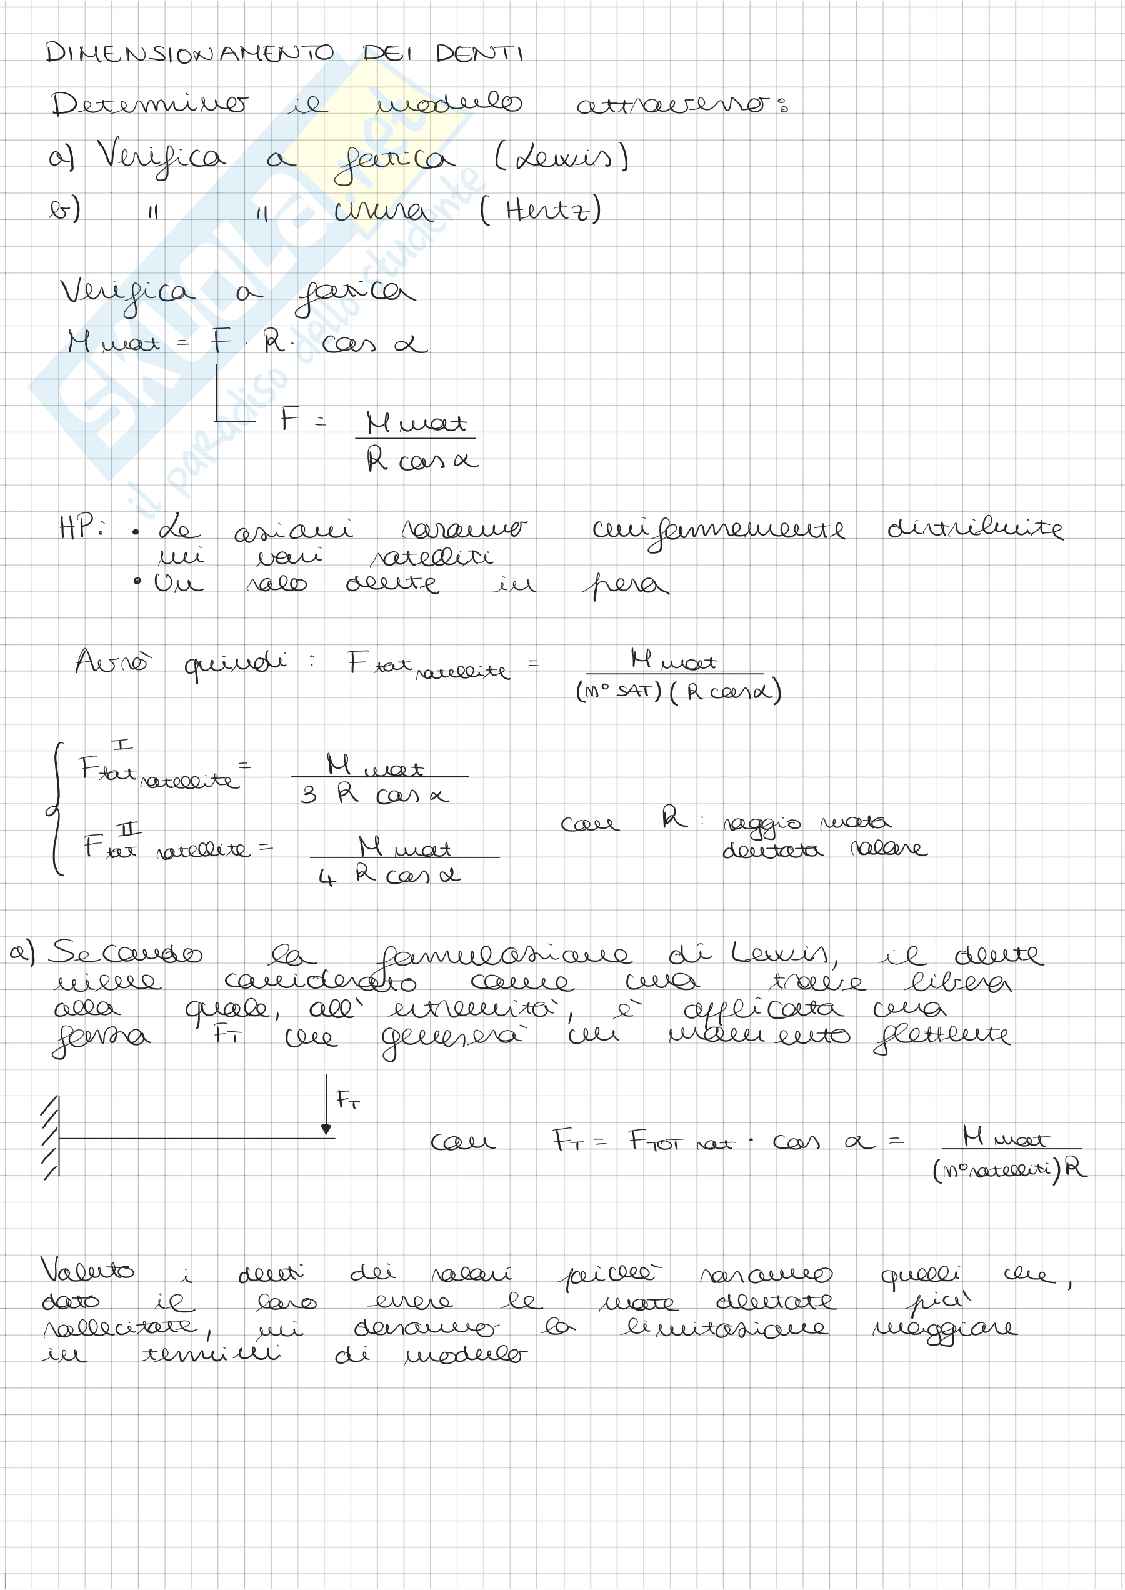 DIMENSIONAMENTO DEI DENTI
Determino il modulo attraverso:
a) Verifica a fatica (Lewis)
b) " " usura (Hertz)
Verifica a fatica
M mot = F · R · cos α
F = M mot / R cos α
HP: • Le azioni saranno uniformemente distribuite
sui vari satelliti
• Un solo dente in presa
Avrò quindi: F tot satellite = M mot / (n° SAT) (R cos α)
F tot satellite I = M mot / 3 R cos α
F tot satellite II = M mot / 4 R cos α
con R: raggio ruota
dentata solare
a) Secondo la formulazione di Lewis, il dente
viene considerato come una trave libera
alla quale, all' estremità, è applicata una
forza FT che genererà un momento flettente
FT
con FT = FTOT sat · cos α = M mot / (n° satelliti) R
Valuto i denti dei solari poichè saranno quelli che,
dato il loro essere le ruote dentate più
sollecitate, mi daranno la limitazione maggiore
in termini di modulo
SKUOLA.net
il paradiso dello studente